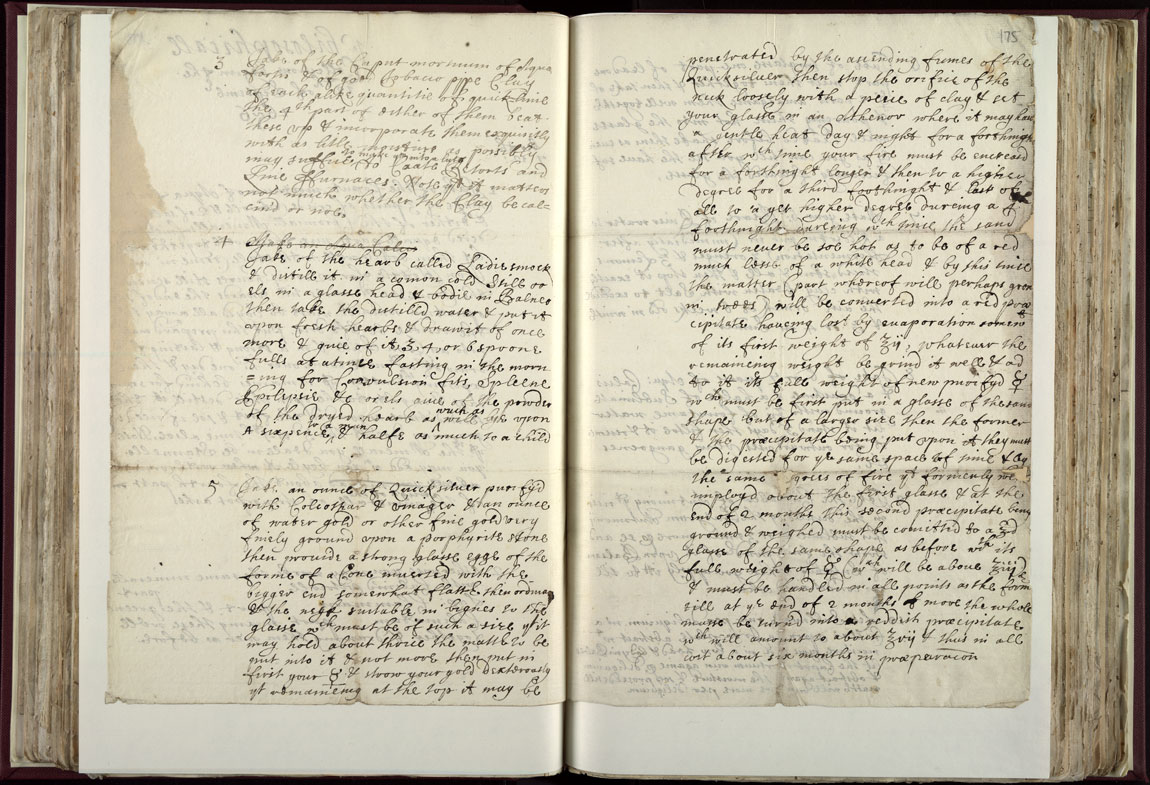 3 Take of the Caput mortuum of Aqua
fortis & of good Tobacco pipe Clay
of each alike quantitie of quick lime
the 4th part of either of them beat
these up & incorporate them exquisitly
with as litle moysture as possibly
may suffice, to make ym into a lute to Coate Retorts and
Line Furnaces. Note yt it matters
not much whether the Clay be cal=
cin'd or noe.
4 Make an Aqua
Take of the hearb called Ladiesmock
& distill it in a comon cold Still or
els in a glasse head & bodie in Balneo
then take the distilled water & put it
upon fresh hearbs & draw it of once
more & give of it 3, 4, or 6 spoone
fulls at a time fasting in the morn
=ing for Convulsion fits, Spleene
Epilepsie &c or els give of the powder
of the dryed hearb as much as will lye upon
A sixpence, & halfe as much to a Child
5 Take an ounce of Quicksilver purifyd
with Colcothar & vinager & an ounce
of water gold or other fine gold very
finely ground upon a porphyrite stone
then provide a strong glasse egge of the
forme of a Cone inverted with the
bigger end somewhat flatter then ordinary
& the neck suitable in bignes to the
glasse wch must be of such a size yt it
may hold about thrice the matter to be
put into it & not more then put in
first your ☿ & strow your gold dexterously
yt remaineing at the top it may be
175
penetrated by the ascending fumes of the
Quicksilver then stop the orifice of the
neck loosely with a peece of clay & set
your glasse in an Athenor where it may have
a gentle heat day & night for a forthnight
after wch time your fire must be encreasd
for a forthnight longer & then to a higher
degree for a third forthnight & last of
all to a yet higher degree dureing a 4
forthnight dureing wch time the sand
must never be soe hot as to be of a red
much lesse of a white heat & by this time
the matter (part whereof will perhaps grow
in trees) will be converted into a red præ
cipitate haveing lost by evaporation somewt
of its first weight of ℥ij, whatever the
remaineing weight be grind it well & ad
to it its full weight of new purifyd ☿
wch must be first put in a glasse of the same
shape but of a larger size then the former
& the præcipitate being put upon it they must
be digested for ye same space of time & by
the same degrees of fire yt formerly we
imployd about the first glasse & at the
end of 2 months this second præcipitate being
ground & weighed must be comitted to a 3d
glasse of the same shape as before with its
full weight of ☿ (wch will be about ℥iij)
& must be handled in all points as the form
till at ye end of 2 months more the whole
masse be turnd into a reddish præcipitate
wch will amount to about ℥vij & this in all
cost about six months in præparacon